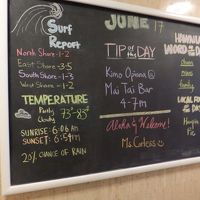 Surf
Report
North Shore - 1-2
East Shore - 3-5
South Shore - 1-3
West Shore - 1-2
TEMPERATURE
Partly
Cloudy
73°-83°
SUNRISE: 6:06 AM
SUNSET: 6:54 PM
20% CHANCE OF RAIN
JUNE 17
TIP of the DAY
Kimo Opiana @
Mai Tai Bar
4-7 pm
Aloha & Welcome!
WORD of the
LOCAL